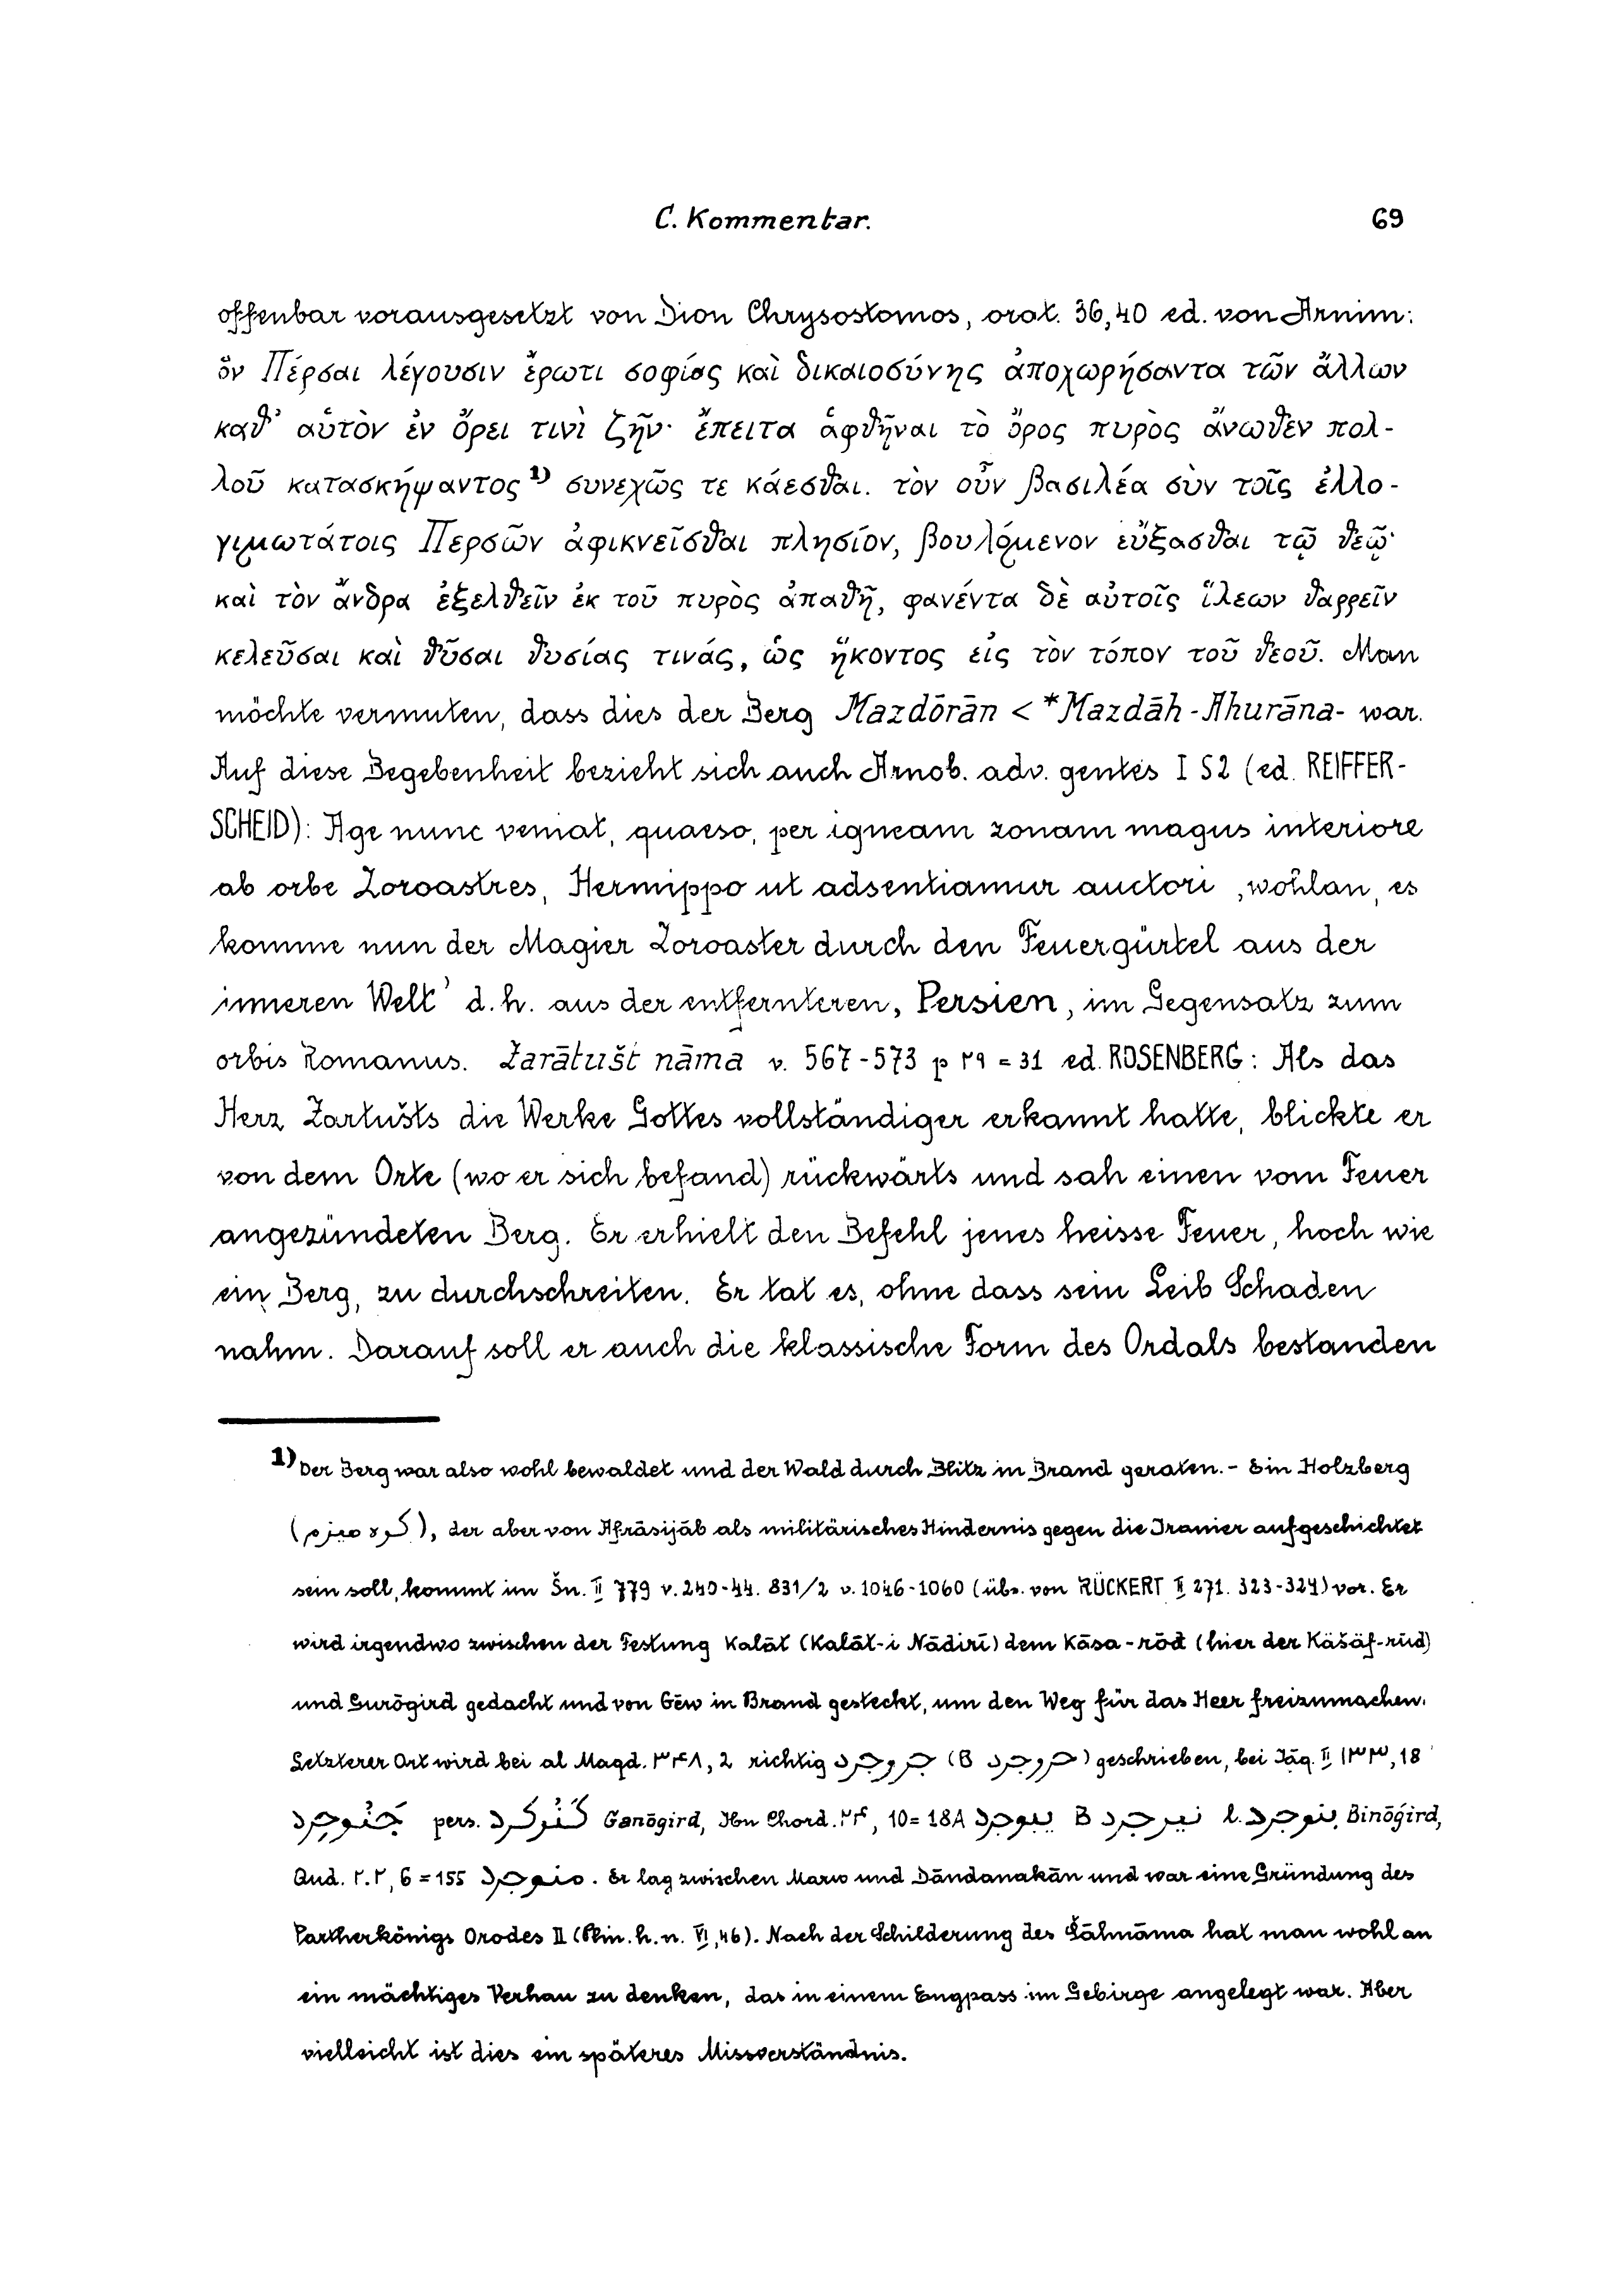 C. Kommentar. 69
offenbar vorausgesetzt von Dion Chrysostomos, orat. 36,40 ed. von Arnim:
ὃν Πέρσαι λέγουσιν ἔρωτι σοφίας καὶ δικαιοσύνης ἀποχωρήσαντα τῶν ἄλλων
καθ' αὑτὸν ἐν ὄρει τινὶ ζῆν· ἔπειτα ἁφθῆναι τὸ ὄρος πυρὸς ἄνωθεν πολ-
λοῦ κατασκήψαντος¹⁾ συνεχῶς τε κάεσθαι. τὸν οὖν βασιλέα σὺν τοῖς ἐλλο-
γιμωτάτοις Περσῶν ἀφικνεῖσθαι πλησίον, βουλόμενον εὔξασθαι τῷ θεῷ·
καὶ τὸν ἄνδρα ἐξελθεῖν ἐκ τοῦ πυρὸς ἀπαθῆ, φανέντα δὲ αὐτοῖς ἵλεων θαρρεῖν
κελεῦσαι καὶ θῦσαι θυσίας τινάς, ὡς ἥκοντος εἰς τὸν τόπον τοῦ θεοῦ. Man
möchte vermuten, dass dies der Berg Mazdōrān < *Mazdāh-Ahurāna- war.
Auf diese Begebenheit bezieht sich auch Arnob. adv. gentes I 52 (ed. REIFFER-
SCHEID): Age nunc veniat, quaeso, per igneam zonam magus interiore
ab orbe Zoroastres, Hermippo ut adsentiamur auctori ‚wohlan, es
komme nun der Magier Zoroaster durch den Feuergürtel aus der
inneren Welt' d.h. aus der entfernteren, Persien, im Gegensatz zum
orbis Romanus. Zarātušt nāma v. 567-573 p ٢٩ = 31 ed. ROSENBERG: Als das
Herz Zartušts die Werke Gottes vollständiger erkannt hatte, blickte er
von dem Orte (wo er sich befand) rückwärts und sah einen vom Feuer
angezündeten Berg. Er erhielt den Befehl jenes heisse Feuer, hoch wie
ein Berg, zu durchschreiten. Er tat es, ohne dass sein Leib Schaden
nahm. Darauf soll er auch die klassische Form des Ordals bestanden
1) Der Berg war also wohl bewaldet und der Wald durch Blitz in Brand geraten.- Ein Holzberg
(كوه هيزم), der aber von Afrāsijāb als militärisches Hindernis gegen die Iranier aufgeschichtet
sein soll, kommt im Šn. II 779 v. 240-44. 831/2 v. 1046-1060 (übs. von RÜCKERT II 271. 323-324) vor. Er
wird irgendwo zwischen der Festung Kalāt (Kalāt-i Nādirī) dem Kāsa-rōd (hier der Käšäf-rūd)
und Gurōgird gedacht und von Gēw in Brand gesteckt, um den Weg für das Heer freizumachen.
Letzterer Ort wird bei al Maqd. ٣٤٨, 2 richtig جروجرد (B حروجرد) geschrieben, bei Jāq. II ١٣٣, 18
جَنُوجِرد pers. كَنُوكرد Ganōgird, Ibn Chord. ٢٤, 10 = 18A يبوجرد B نيرجرد l. بنوجرد Binōǵird,
Qud. ٢٠٢, 6 = 155 منوجرد. Er lag zwischen Marw und Dāndanakān und war eine Gründung des
Partherkönigs Orodes II (Plin. h. n. VI, 46). Nach der Schilderung des Šāhnāma hat man wohl an
ein mächtiges Verhau zu denken, das in einem Engpass im Gebirge angelegt war. Aber
vielleicht ist dies ein späteres Missverständnis.